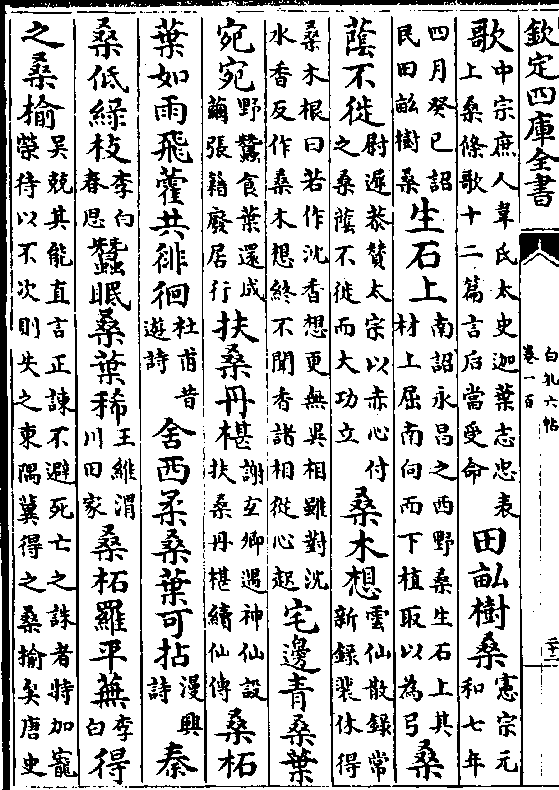 欽定四庫全書
白孔六帖
卷一百
歌中宗庶人韋氏太史迦葉志忠表上桑條歌十二篇言后當受命田畝樹桑憲宗元和七年
四月癸巳詔民田畝樹桑生石上南詔永昌之西野桑生石上其材上屈南向而下植取以為弓桑
蔭不徙尉遲恭贊太宗以赤心付之桑蔭不徙而大功立桑木想雲仙散錄常新錄裴休得
桑木根曰若作沈香想更無異相雖對沈水香反作桑木想終不聞香諸相從心起宅邊青桑葉
宛宛野蠶食葉還成繭張籍廢居行扶桑丹椹謝玄卿遇神仙設扶桑丹椹續仙傳桑柘
葉如雨飛藿共徘徊杜甫昔遊詩舍西柔桑葉可拈漫興詩秦
桑低綠枝李白春思蠶眠桑葉稀王維渭川田家桑柘羅平蕪李白得
之桑榆吳兢其能直言正諫不避死亡之誅者特加寵榮待以不次則失之東隅冀得之桑榆矣唐史